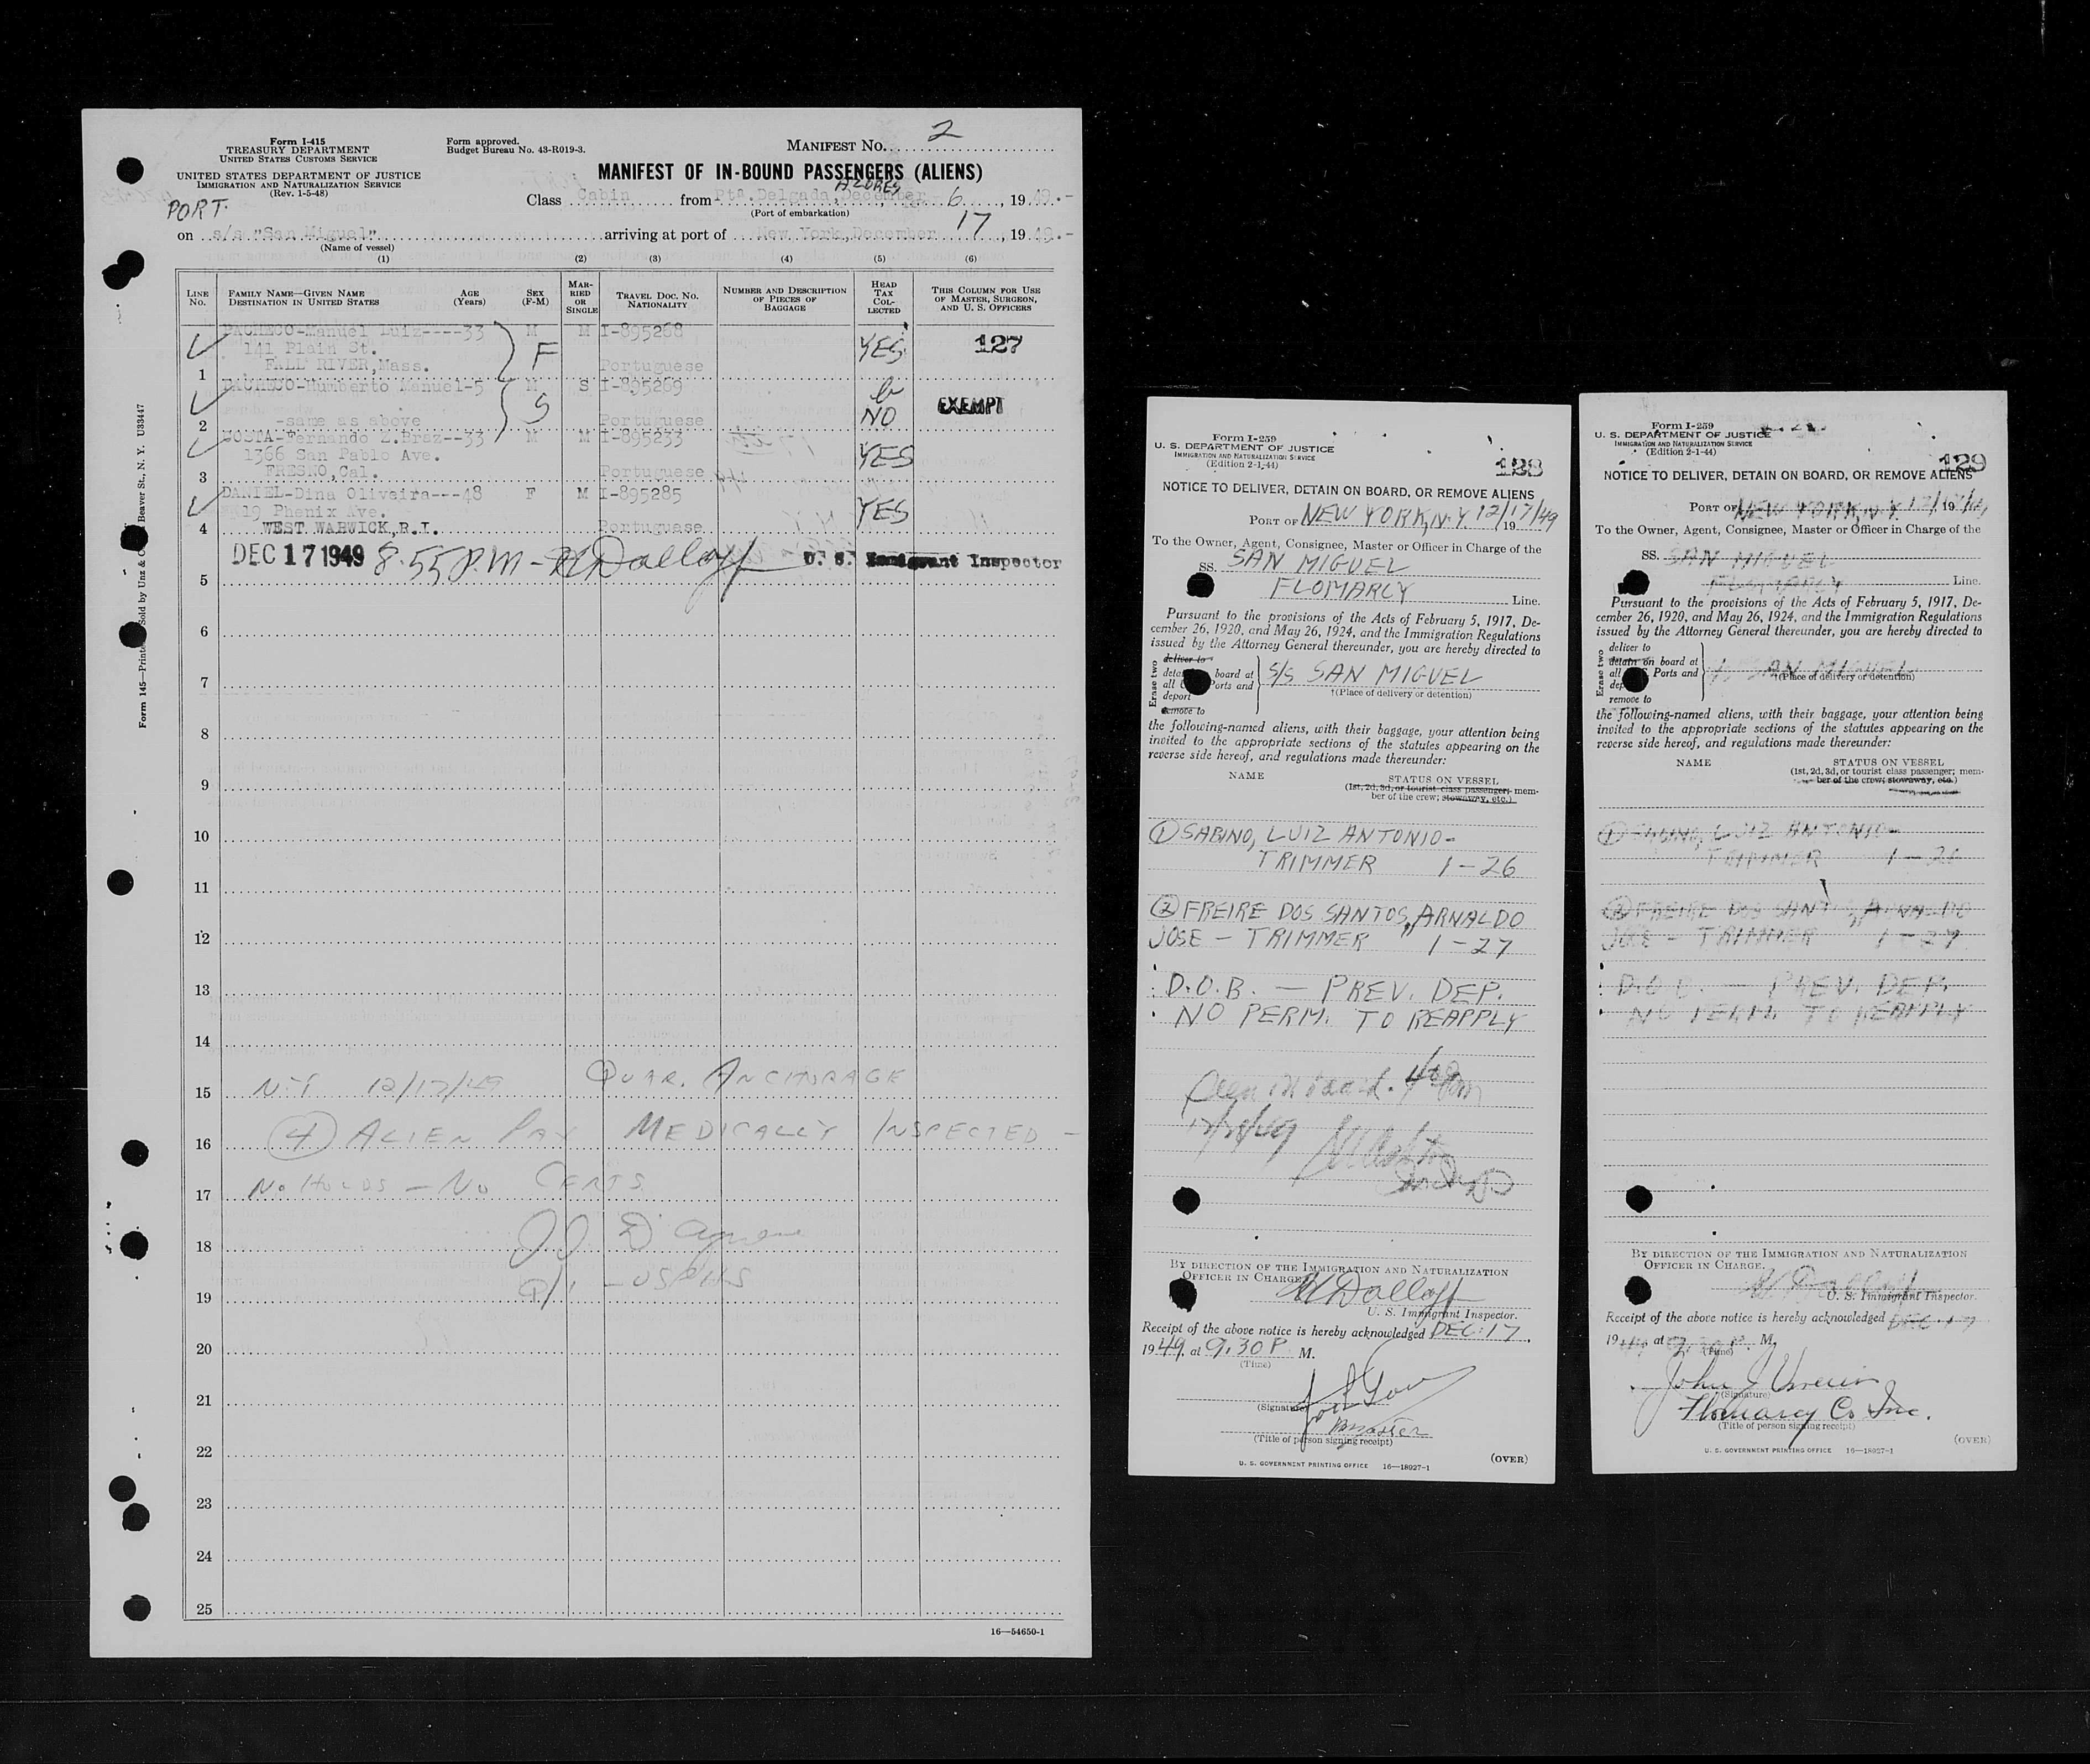 Form I-415
TREASURY DEPARTMENT
UNITED STATES CUSTOMS SERVICE
UNITED STATES DEPARTMENT OF JUSTICE
IMMIGRATION AND NATURALIZATION SERVICE
(Rev. 1-5-48)
Form approved.
Budget Bureau No. 43-R019-3.
MANIFEST No. 2
MANIFEST OF IN-BOUND PASSENGERS (ALIENS)
AZORES
Class Cabin from Ptª. Delgada, December 6, 1949.-
(Port of embarkation)
PORT.
on s/s "San Miguel" arriving at port of New York, December 17, 1949.-
(Name of vessel)
(1) (2) (3) (4) (5) (6)
LINE No.
FAMILY NAME—GIVEN NAME
DESTINATION IN UNITED STATES
AGE (Years)
SEX (F-M)
MARRIED OR SINGLE
TRAVEL DOC. NO.
NATIONALITY
NUMBER AND DESCRIPTION OF PIECES OF BAGGAGE
HEAD TAX COLLECTED
THIS COLUMN FOR USE OF MASTER, SURGEON, AND U. S. OFFICERS
PACHECO-Manuel Luiz----33 M M I-895268
141 Plain St. F YES 127
1 FALL RIVER, Mass. Portuguese
PACHECO-Humberto Manuel-5 M S I-895269
S NO EXEMPT
2 -same as above Portuguese
COSTA-Fernando Z.Braz--33 M M I-895233
1366 San Pablo Ave. YES
3 FRESNO, Cal. Portuguese
DANIEL-Dina Oliveira---48 F M I-895285
19 Phenix Ave. YES
4 WEST WARWICK, R.I. Portuguese
DEC 17 1949 8:55 P.M - Dalloff U. S. Immigrant Inspector
5
6
7
8
9
10
11
12
13
14
15 N.Y 12/17/49 QUAR. ANCHORAGE
16 (4) ALIEN PAX MEDICALLY INSPECTED -
17 NO HOLDS - NO CERTS
18
19 - USPHS
20
21
22
23
24
25
16—54650-1
Form I-259
U. S. DEPARTMENT OF JUSTICE
IMMIGRATION AND NATURALIZATION SERVICE
(Edition 2-1-44)
128
NOTICE TO DELIVER, DETAIN ON BOARD, OR REMOVE ALIENS
PORT OF NEW YORK, N.Y. 12/17/49
To the Owner, Agent, Consignee, Master or Officer in Charge of the
SS. SAN MIGUEL
FLOMARCY Line.
Pursuant to the provisions of the Acts of February 5, 1917, De-
cember 26, 1920, and May 26, 1924, and the Immigration Regulations
issued by the Attorney General thereunder, you are hereby directed to
Erase two
deliver to
board at
all Ports and
deport
remove to
S/S SAN MIGUEL
†(Place of delivery or detention)
the following-named aliens, with their baggage, your attention being
invited to the appropriate sections of the statutes appearing on the
reverse side hereof, and regulations made thereunder:
NAME STATUS ON VESSEL
(1st, 2d, 3d, or tourist class passenger; mem-
ber of the crew; stowaway, etc.)
① SABINO, LUIZ ANTONIO-
TRIMMER 1-26
② FREIRE DOS SANTOS, ARNALDO
JOSE - TRIMMER 1-27
D.O.B. - PREV. DEP.
NO PERM. TO REAPPLY
BY DIRECTION OF THE IMMIGRATION AND NATURALIZATION
OFFICER IN CHARGE.
Dalloff
U. S. Immigrant Inspector.
Receipt of the above notice is hereby acknowledged DEC. 17,
1949, at 9:30 P. M.
(Time)
(Signature)
Master
(Title of person signing receipt)
U. S. GOVERNMENT PRINTING OFFICE 16—18927-1
(OVER)
Form I-259
U. S. DEPARTMENT OF JUSTICE
IMMIGRATION AND NATURALIZATION SERVICE
(Edition 2-1-44)
129
NOTICE TO DELIVER, DETAIN ON BOARD, OR REMOVE ALIENS
PORT OF NEW YORK, N.Y. 12/17/49
To the Owner, Agent, Consignee, Master or Officer in Charge of the
SS. SAN MIGUEL
FLOMARCY Line.
Pursuant to the provisions of the Acts of February 5, 1917, De-
cember 26, 1920, and May 26, 1924, and the Immigration Regulations
issued by the Attorney General thereunder, you are hereby directed to
Erase two
deliver to
detain on board at
all Ports and
remove to
SAN MIGUEL
†(Place of delivery or detention)
the following-named aliens, with their baggage, your attention being
invited to the appropriate sections of the statutes appearing on the
reverse side hereof, and regulations made thereunder:
NAME STATUS ON VESSEL
(1st, 2d, 3d, or tourist class passenger; mem-
ber of the crew; stowaway, etc.)
① SABINO, LUIZ ANTONIO-
TRIMMER 1-26
② FREIRE DOS SANTOS, ARNALDO
JOSE - TRIMMER 1-27
D.O.B. - PREV. DEP.
NO PERM. TO REAPPLY
BY DIRECTION OF THE IMMIGRATION AND NATURALIZATION
OFFICER IN CHARGE.
Dalloff
U. S. Immigrant Inspector.
Receipt of the above notice is hereby acknowledged DEC. 17
1949 at 9:30 P. M.
(Time)
John J
(Signature)
Flomarcy Co Inc.
(Title of person signing receipt)
U. S. GOVERNMENT PRINTING OFFICE 16—18927-1
(OVER)